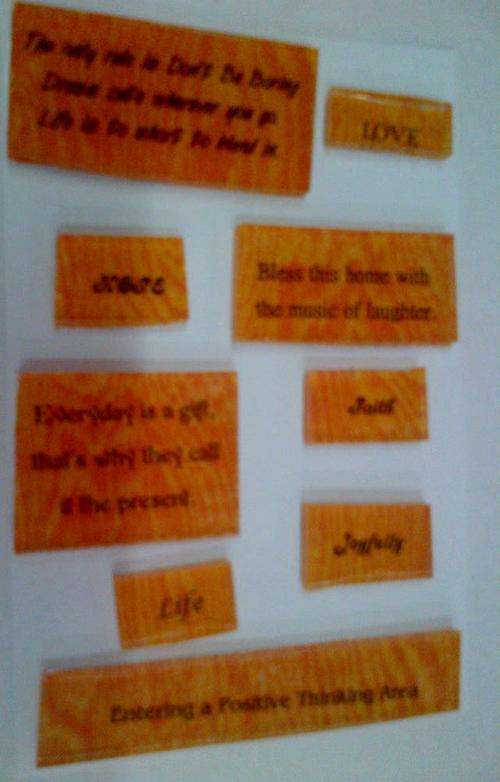 The only rule is Don't Be Boring
Dress cute wherever you go.
Life is to short to blend in.
LOVE
HOPE
Bless this home with
the music of laughter.
Everyday is a gift,
that's why they call
it the present.
Faith
Joyfully
Life
Entering a Positive Thinking Area